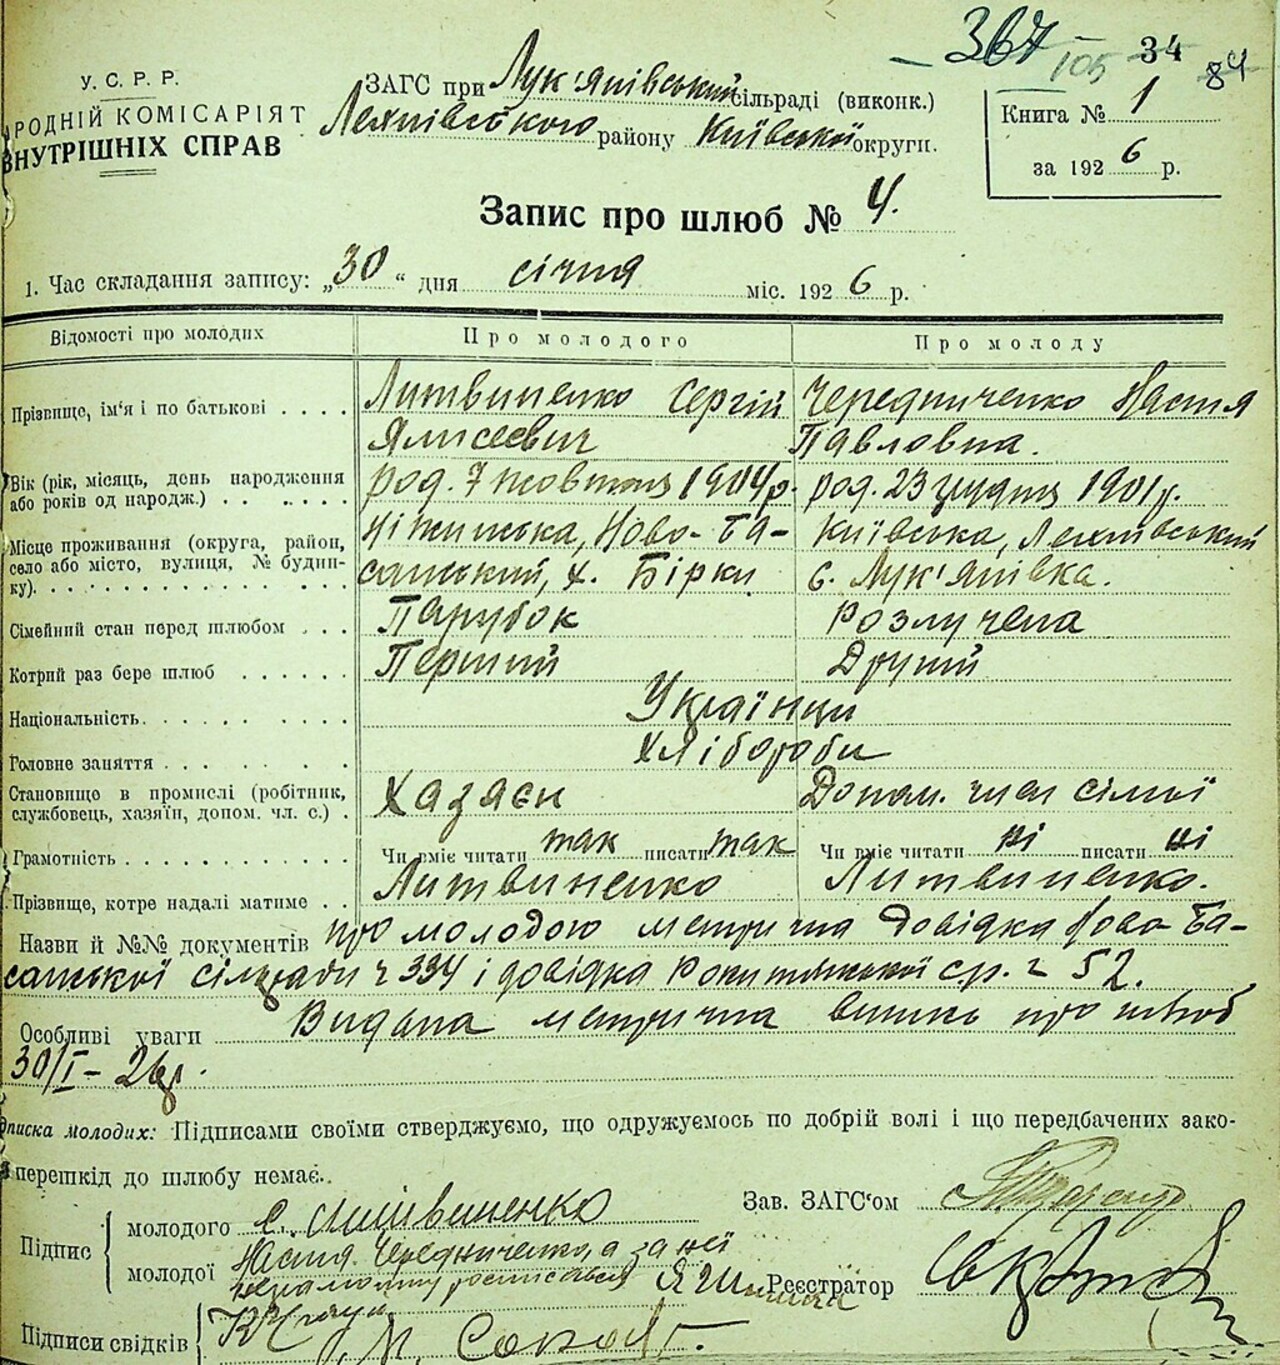 367 105 34 84
У. С. Р. Р.
РОДНІЙ КОМІСАРІЯТ
ВНУТРІШНІХ СПРАВ
ЗАГС при Лук'янівський сільраді (виконк.)
Лехнівського району Київськои округи.
Книга № 1
за 1926 р.
Запис про шлюб № 4.
1. Час складання запису: „30“ дня січня міс. 1926 р.
Відомості про молодих Про молодого Про молоду
Прізвище, ім'я і по батькові . . . . Литвиненко Сергій Чередниченко Настя
Ялисеевич Павловна.
Вік (рік, місяць, день народження або років од народж.) . . . . . . род. 7 жовтня 1904р. род. 23 грудня 1901р.
Місце проживання (округа, район, село або місто, вулиця, № будинку). Ніжинська, Ново-Ба- Київська, Лехнівський
санський, х. Бірки с. Лук'янівка.
Сімейний стан перед шлюбом . . . Парубок Розлучена
Котрий раз бере шлюб . . . . . . Перший Другий
Національність. . . . . . . . . . Українци
Головне заняття . . . . . . . . Хлібороби
Становище в промислі (робітник, службовець, хазяїн, допом. чл. с.) . Хазяєн Допом. член сімьї
Грамотність . . . . . . . . . . . . Чи вміє читати так писати так Чи вміє читати ні писати ні
Прізвище, котре надалі матиме . . Литвиненко Литвиненко.
Назви й №№ документів про молодою метрична довідка Ново-Ба-
санської сільради ч 334 і довідка Рокитянської с.р. ч 52.
Особливі уваги Видана метрична випись про шлюб
30/I - 26р.
дписка молодих: Підписами своїми стверджуємо, що одружуємось по добрій волі і що передбачених зако-
перешкід до шлюбу немає.
Підпис молодого С. Литвиненко Зав. ЗАГС'ом
молодої Настя Чередниченко, а за неї
неграмотну росписався Реєстратор
Підписи свідків